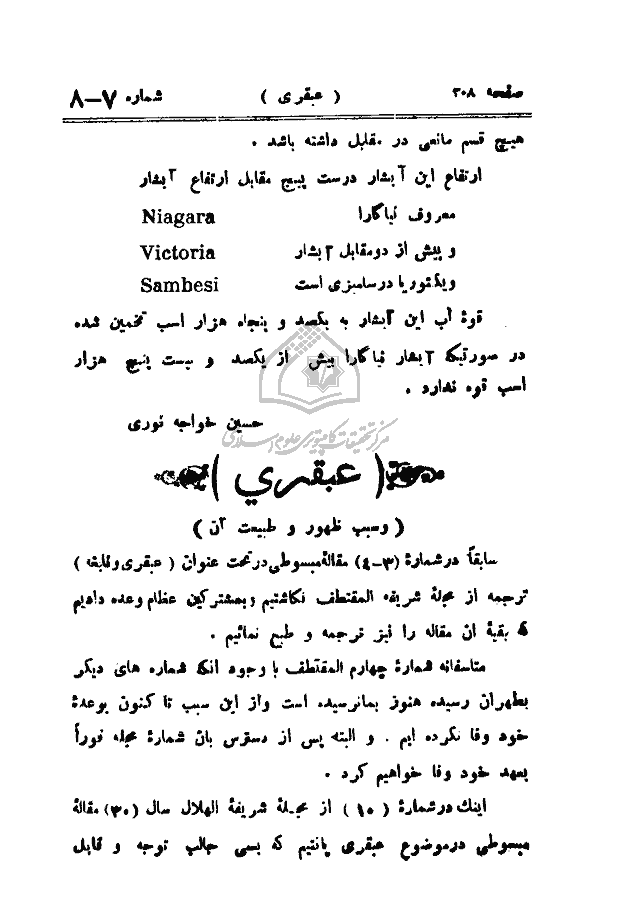 صفحه ۳۰۸ ( عبقری ) شماره ۷–۸
هیچ قسم مانعی در مقابل داشته باشد .
ارتفاع این آبشار درست پنج مقابل ارتفاع آبشار
معروف نیاگارا Niagara
و بیش از دومقابل آبشار Victoria
ویکتوریا در سامبزی است Sambesi
قوهٔ آب این آبشار به یکصد و پنجاه هزار اسب تخمین شده
در صورتیکه آبشار نیاگارا بیش از یکصد و بیست پنج هزار
اسب قوه ندارد .
حسین خواجه نوری
مرکز تحقیقات کامپیوتری علوم اسلامی
( عبقري )
( وسبب ظهور و طبیعت آن )
سابقاً در شمارهٔ (۳–٤) مقالهٔ مبسوطی در تحت عنوان ( عبقری و نابغه )
ترجمه از مجلهٔ شریفه المقتطف نگاشتیم و بمشترکین عظام وعده دادیم
که بقیهٔ آن مقاله را نیز ترجمه و طبع نمائیم .
متاسفانه شمارهٔ چهارم المقتطف با وجود آنکه شماره های دیگر
بطهران رسیده هنوز بمانرسیده است واز این سبب تا کنون بوعدهٔ
خود وفا نکرده ایم . و البته پس از دسترس بان شمارهٔ مجله فوراً
بعهد خود وفا خواهیم کرد .
اینك در شمارهٔ ( ۱۰ ) از مجلهٔ شریفهٔ الهلال سال (۳۰) مقالهٔ
مبسوطی درموضوع عبقری یافتیم که بسی جالب توجه و قابل